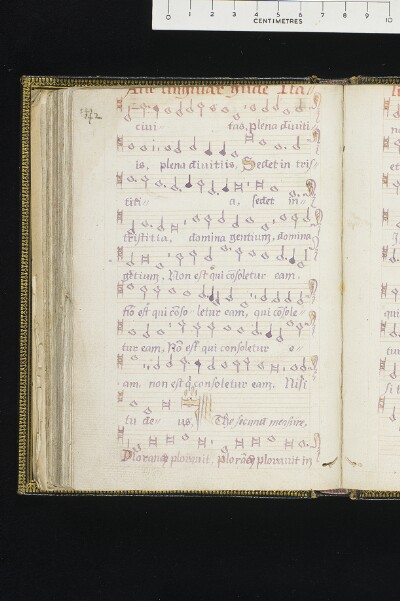 0 1 2 3 4 5 6 7 8 9 10
CENTIMETRES
ciui - tas, plena diuiti
is, plena diuitiis, Sedet in tris
titi - a, sedet in
tristitia, domina gentium, domina
gētium, Non est qui cōsoletur eam,
nō est qui cōso - letur eam, qui cōsole
tur eam, Nō est qui consoletur e -
am, non est q consoletur eam. Nisi
tu de - us, The second meane.
Plorans plorauit, plorās plorauit in